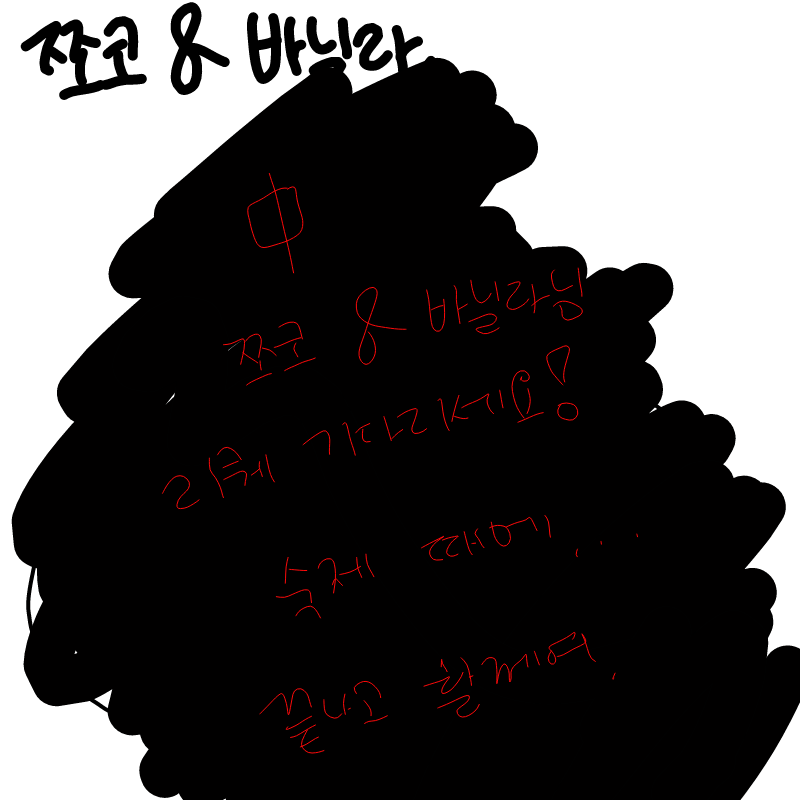 쪼코 & 바닐라
中
쪼코 & 바닐라님
리퀘 기다리세요!
숙제 때메...
끝나고 할께여.